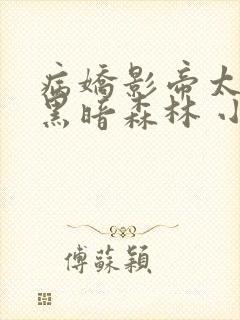 病嬌影帝太
黑暗森林 小
傅蘇穎